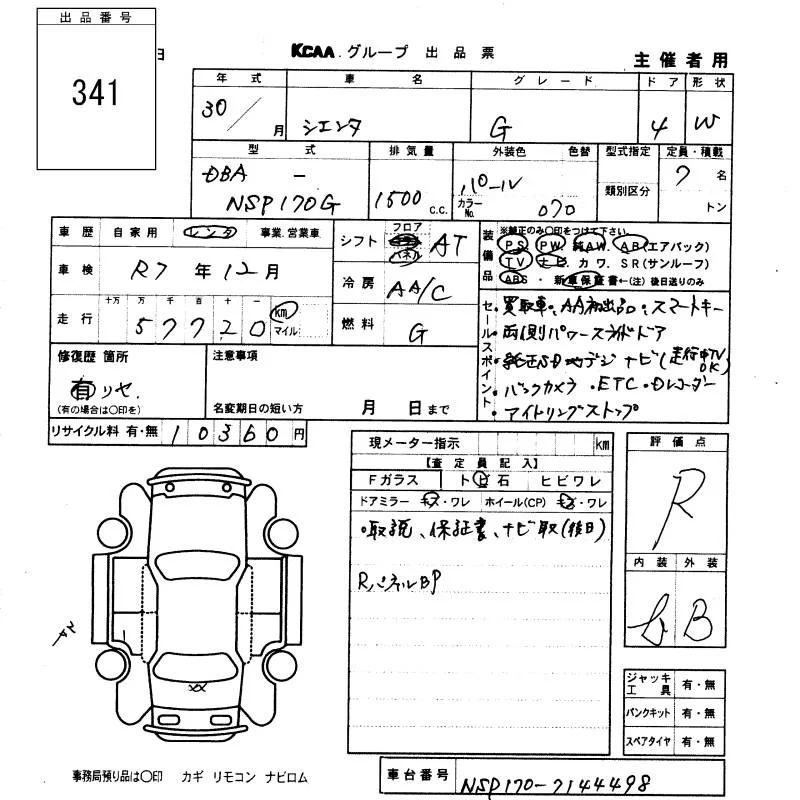 出品番号
341
日
KCAA グループ 出品票
主催者用
年式 車名 グレード ドア 形状
30/ 月 シエンタ G 4 W
型式 排気量 外装色 色替 型式指定 定員・積載
DBA - NSP170G 1500 c.c. パール カラーNo. 070 類別区分 7 名 トン
車歴 自家用 レンタ 事業.営業車
車検 R7 年 12 月
十万 万 千 百 十 一
走行 5 7 7 2 0 km マイル
シフト フロア コラム パネル AT
冷房 AA/C
燃料 G
装備品 ※純正のみ〇印をつけて下さい
PS PW. 純AW. AB(エアバック)
TV ナビ カワ. SR(サンルーフ)
ABS・新車保証書←(注)後日送りのみ
セールスポイント
・買取車・AA初出品・スマートキー
・両側パワースライドドア
・純正SD地デジナビ(走行中TVOK)
・バックカメラ・ETC・Dレコーダー
・アイドリングストップ
修復歴 箇所
有 リヤ.
(有の場合は〇印を)
注意事項
名変期日の短い方 月 日まで
リサイクル料 有・無 10360 円
現メーター指示 km
【査定員記入】
Fガラス トビ石 ヒビワレ
ドアミラー キズ・ワレ ホイール(CP) キズ・ワレ
・取説、保証書、ナビ取(後日)
RパネルBP
評価点
R
内装 外装
b B
A2
XX
ジャッキ工具 有・無
パンクキット 有・無
スペアタイヤ 有・無
事務局預り品は〇印 カギ リモコン ナビロム
車台番号 NSP170-7144498